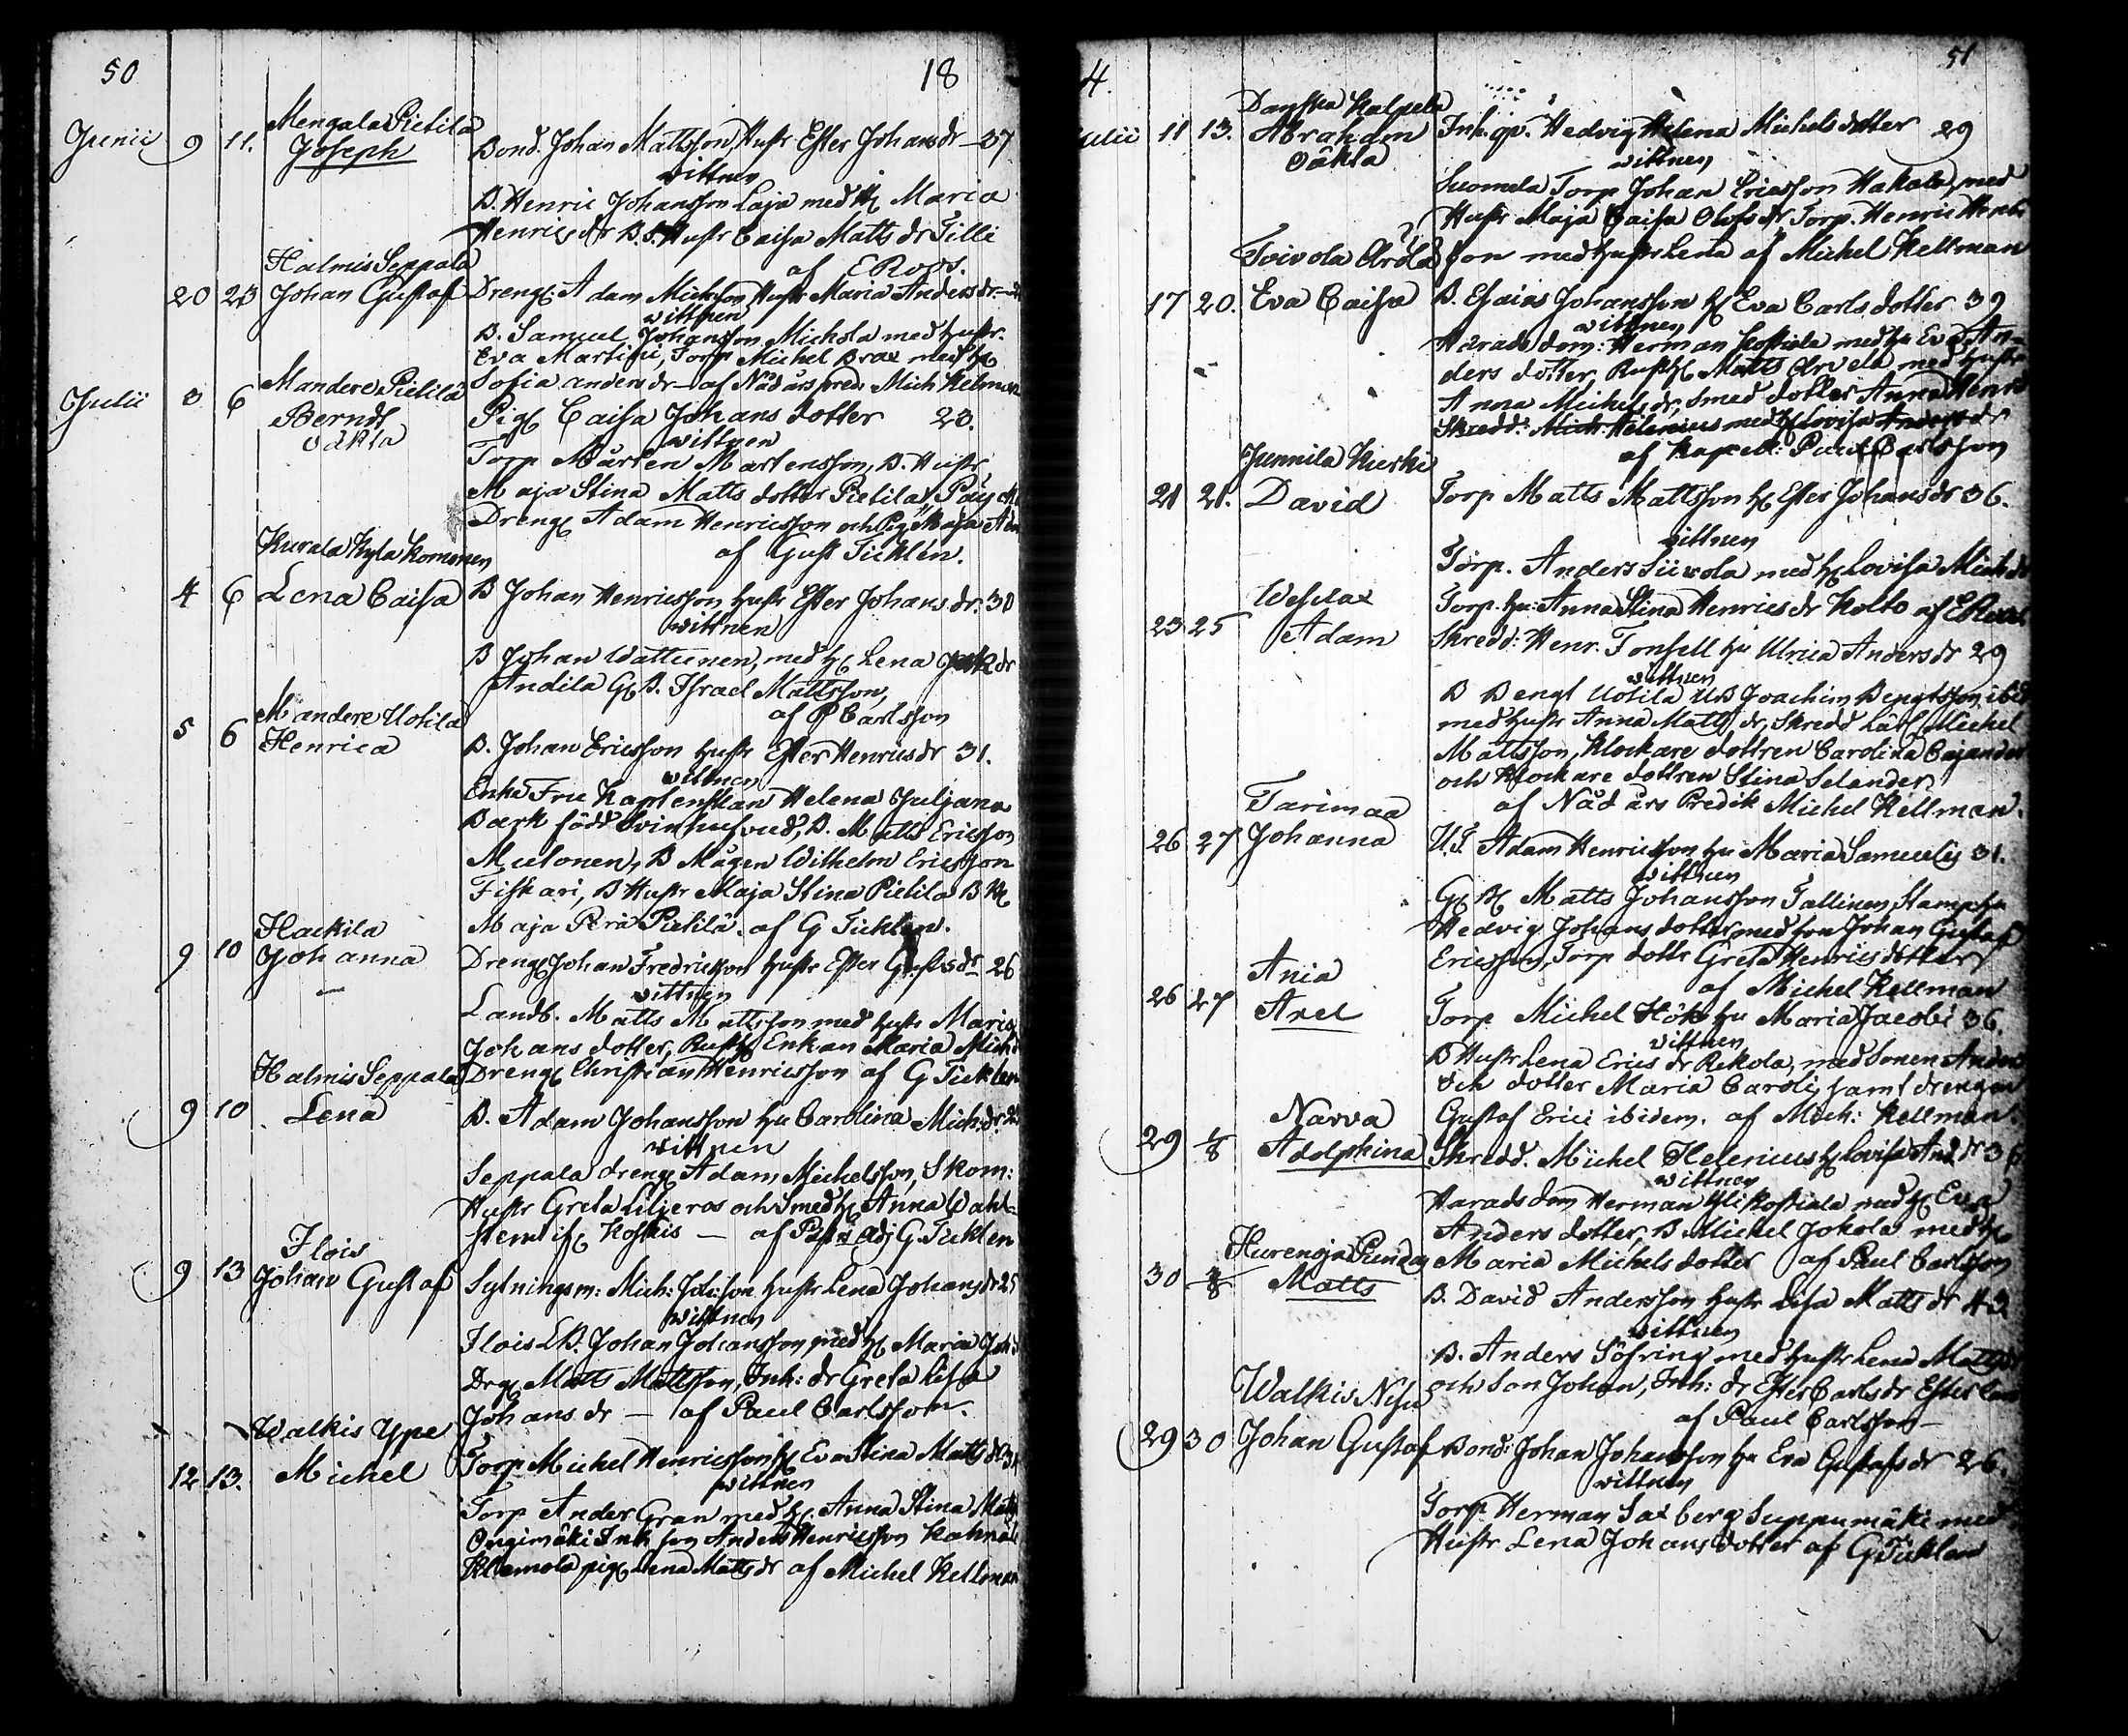 50 18
Mengala Pietilä
Junii 9 11. Joseph Bond. Johan Mattsson, Hustr Ester Johansdr — 37
wittnen
B. Henric Johansson Laja med H Maria
Henricsdr B.S. Hustr Caisa Matts dr Tilli
af E Roos.
Halmis Seppälä
20 23 Johan Gustaf Dreng Adam Michsson Hustr Maria Andersdr
wittnen
B. Samuel Johansson Michola med hustr.
Eva Martini, Torp Michel Brax med H
Sofia anders dr — af Nådårspred: Mich Kelman
Mandere Pietilä
Julii 3 6 Berndt Pig Caisa Johans dotter 23.
oäkta wittnen
Torp Mårten Martensson, B. Hustr
Maja Stina Matts dotter Pietilä
Dreng Adam Henricsson och Pig Maja
af Gust Ticklén.
Kurala Kyla Komonen
4 6 Lena Caisa B Johan Henricsson hustr Ester Johans dr. 30
wittnen
B Johan Wattunen, med H Lena dr
Andila G B. Israel Mattsson,
af P Carlsson
Mandere Uotila
5 6 Henrica B. Johan Ericsson hustr Ester Henricsdr 31.
wittnen
Enke Fru Kaptenskan Helena Juljana
Bærk född Svinhufvud, B. Matts Ericsson
Mulonen, B Mågen Wilhelm Ericsson
Fiskari, B Hustr Maja Stina Pietilä B H
Maja Perä Pietilä. af G Ticklen.
Haekila
9 10 Johanna Dreng Johan Fredricsson hustr Ester Gustsdr 26
wittnen
Landb. Matts Mattsson med hustr Maria
Johans dotter, Rusth Enkan Maria Mich
Dreng Christian Henricsson af G Ticklen
Halmis Seppala
9 10 Lena B. Adam Johansson hu Carolina Mich: dr.
wittnen
Seppala dreng Adam Michelsson, Skom:
Hustr Greta Liljeros och Smed H Anna
Koskis — af Past Adj G. Ticklen
Ilois
9 13 Johan Gustaf Sytningsm: Mich: hustr Lena Johansdr 25
wittnen
Ilois L B. Johan Johansson med H Maria
Dr Matts Mattsson, Inh: dr Greta Lisa
Johans dr — af Paul Carlsson.
Walkis Ype
12 13. Michel Torp Michel Henricsson H Eva Stina Matts dr
wittnen
Torp Ander Gran med H. Anna Stina
Ongimäki Inh son Anders Henricsson
pig Lena Mattsdr af Michel Kellman
4. 51
Danska Kalpela
Julii 11 13. Abraham Inh. qv. Hedvig Helena Michels dotter 29
Oäkta wittnen
Suomela Torp Johan Ericsson Hakala, med
Hustr Maja Caisa Olofsdr, Torp. Henric
son med hustr Lena af Michel Kellman
Toivola Arola
17 20. Eva Caisa B. Esaias Johansson H Eva Carls dotter 39
wittnen
Härads dom: Herman Koskiala med hu Eva An-
ders dotter, Rusth Matts Arvela med hustr
Anna Michelsdr, smed dotter Anna Henric
Skredd: Mich: Helenius med H Lovisa Anders dr
af Kapell: Paul Carlsson
Junnila Kierki
21 21. David Torp Matts Mattsson H Ester Johansdr 36.
wittnen
Torp. Anders Siivola med H Lovisa Mich dr
Torp. hu: Anna Stina Henricsdr Kolto af E Roos
Wesilax
23 25 Adam Skredd: Henr. Tonsell hu Ulrica Anders dr 29
wittnen
B Bengt Uotila UB Joachim Bengtsson ibid
med hustr Anna Matts dr, Skredd Lärl Michel
Mattsson, Klockare dottren Carolina Cajander
och Klockare dottren Stina Selander.
af Nådårs Predik Michel Kellman.
Tarimaa
26 27 Johanna U.S. Adam Henricsson hu Maria Samuelis 31.
wittnen
G B Matts Johansson Tallinen, Kamp hu
Hedvig Johans dotter med son Johan Gustaf
Ericsson, Torp dottr Greta Henrics dotter
af Michel Kellman
Ania
26 27 Axel Torp Michel Hök hu Maria Jacobi 36.
wittnen
B Hustr Lena Erics dr Rekola, med Sonen Anders
och dotter Maria Caroli, samt drengen
Gustaf Erici ibidem. af Mich: Kellman.
Narva
29 1/8 Adolphina Skredd. Michel Helenius H Lovisa And dr 36
wittnen
Härads dom Herman Yli Koskiala med H Eva
Anders dotter, B Michel Jokela med H
Maria Michels dotter af Paul Carlsson
Hurenoja
30 3/8 Matts B. David Andersson hustr Lisa Matts dr 43.
wittnen
B. Anders Söfring med hustr Lena Matts dr
och Son Johan, Inh: dr Ester Carls dr
af Paul Carlsson —
Walkis Nisu
29 30 Johan Gustaf Bond: Johan Johansson hu Eva Gustafsdr 26.
wittnen
Torp. Herman Saxberg Suppumäki med
Hustr Lena Johans dotter af G Ticklen